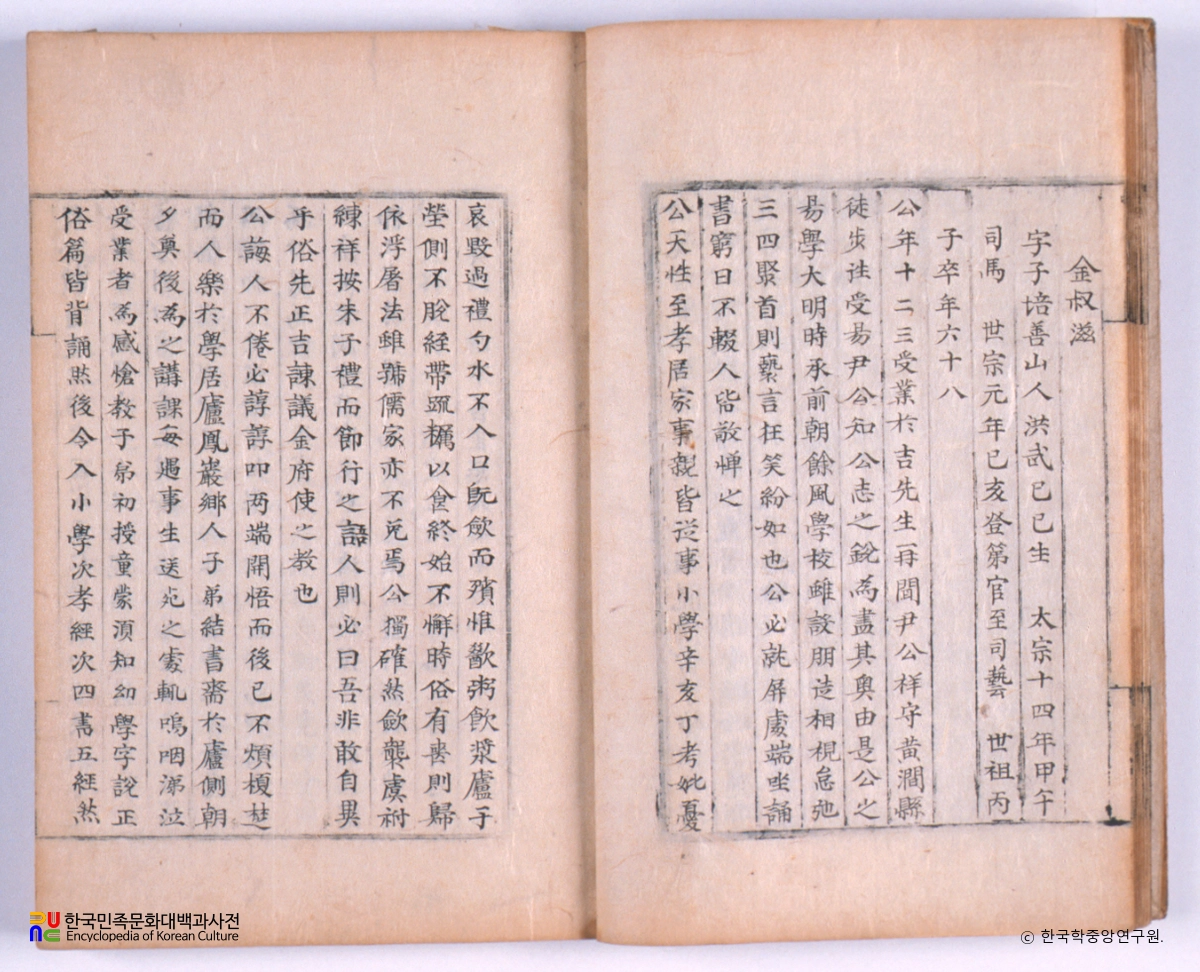 金叔滋
字子培善山人洪武己巳生 太宗十四年甲午
司馬 世宗元年己亥登第官至司藝 世祖丙
子卒年六十八
公年十二三受業於吉先生再閱尹公祥守黃澗縣
徒步往受易尹公知公志之銳為盡其奧由是公之
易學大明時承前朝餘風學校雖設朋造相視怠弛
三四聚首則褻言狂笑紛如也公必就屏處端坐誦
書窮日不輟人皆敬憚之
公天性至孝居家事親皆從事小學辛亥丁考妣憂
哀毀過禮勺水不入口旣斂而殯惟歠粥飮漿廬于
塋側不脫絰帶疏糲以食終始不懈時俗有喪則歸
依浮屠法雖號儒家亦不免焉公獨確然斂襲虞祔
練祥按朱子禮而節行之語人則必曰吾非敢自異
乎俗先正吉諫議金府使之教也
公誨人不倦必諄諄叩兩端開悟而後已不煩榎楚
而人樂於學居廬鳳巖鄉人子弟結書齋於廬側朝
夕奠後為之講課每遇事生送死之處輒嗚咽涕泣
受業者為感愴教子弟初授童蒙須知幼學字說正
俗篇皆背誦然後令入小學次孝經次四書五經然
한국민족문화대백과사전
Encyclopedia of Korean Culture
© 한국학중앙연구원.